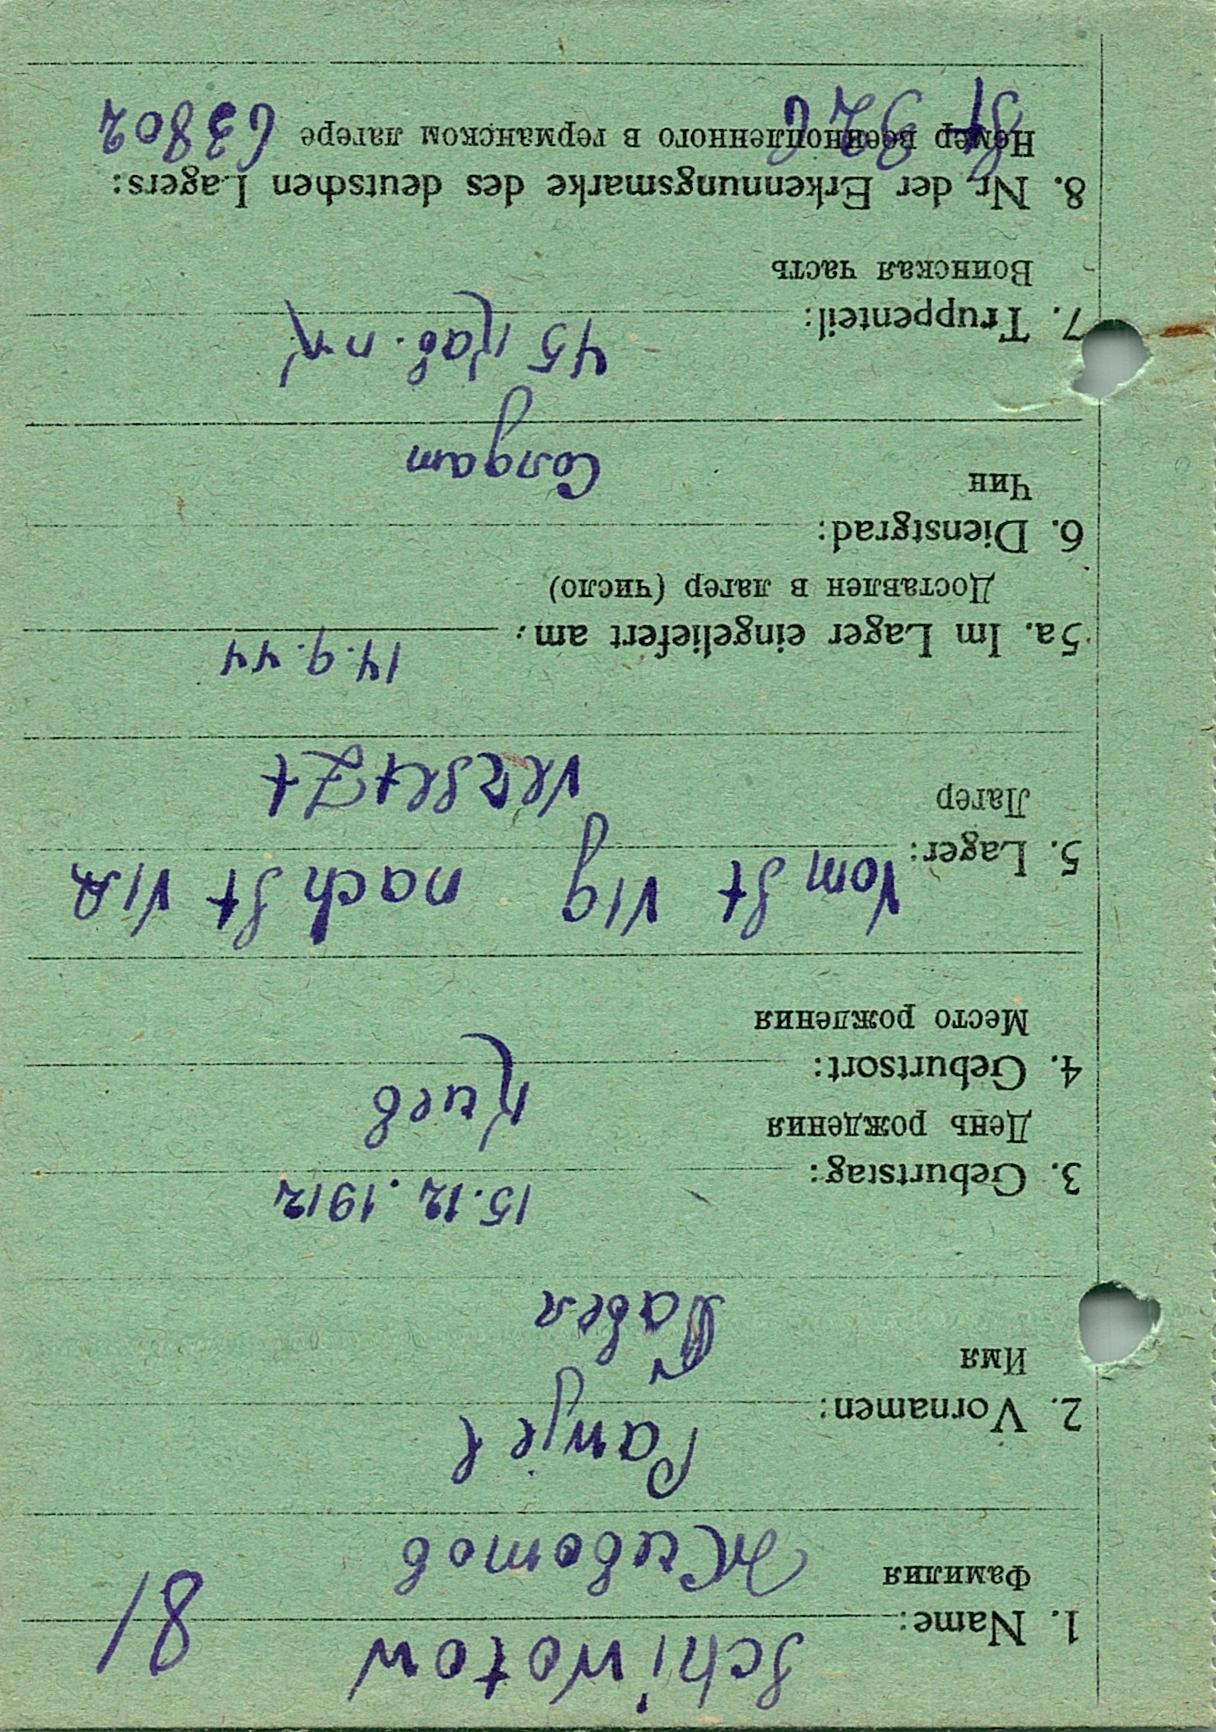 Schiwotow 81
1. Name:
Фамилия Животов
Pawjel
2. Vornamen:
Имя
Павел
15.12.1912
3. Geburtstag:
День рождения
Киев
4. Geburtsort:
Место рождения
Vom St VIG nach St VIA
5. Lager:
Лагер
versetzt
14.9.44
5a. Im Lager eingeliefert am:
Доставлен в лагер (число)
6. Dienstgrad:
Чин Солдат
45 Кав. пк
7. Truppenteil:
Воинская часть
8. Nr. der Erkennungsmarke des deutschen Lagers:
Номер военнопленного в германском лагере 63802
St 326